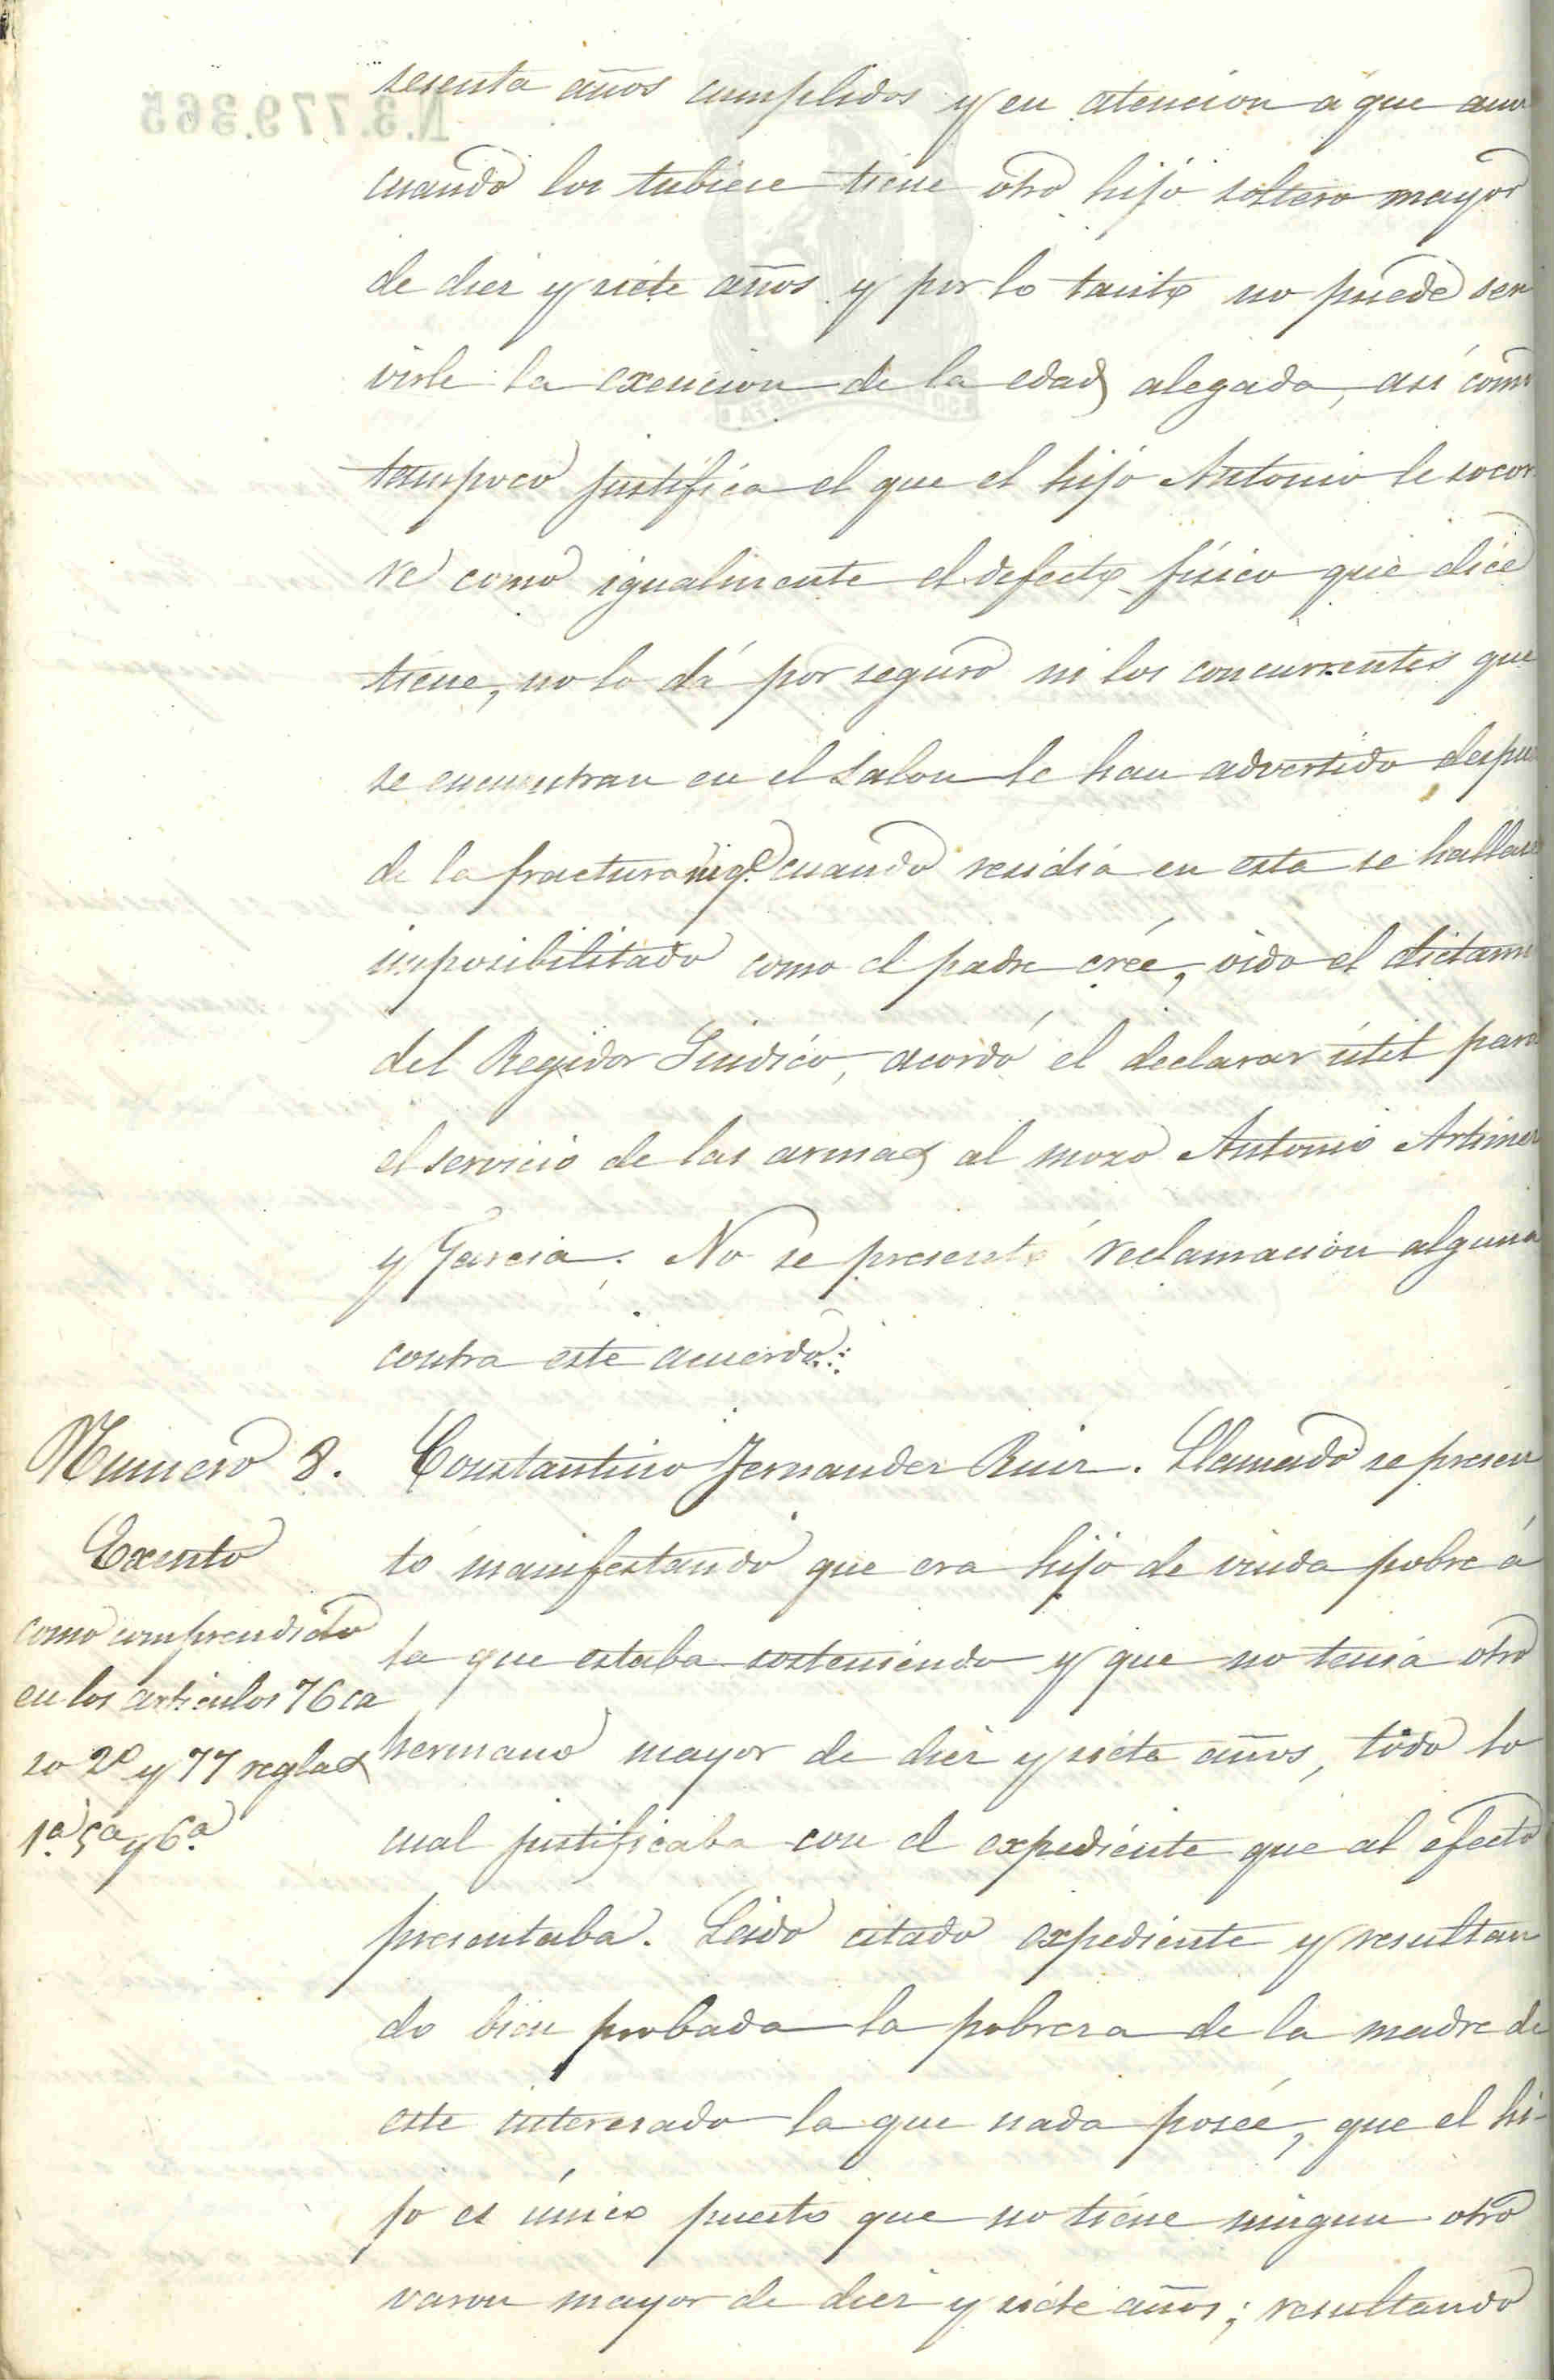 sesenta años cumplidos y en atencion á que aun
cuando los tubiese tiene otro hijo soltero mayor
de diez y siete años y por lo tanto no puede ser
virle la exencion de la edad alegada, así como
tampoco justifica el que el hijo Antonio le socor
re como igualmente el defecto físico que dice
tiene, no lo dá por seguro ni los concurrentes que
se encuentran en el salon le han advertido despues
de la fractura ni q.e cuando residia en esta se hallase
imposibilitado como el padre crée, oido el dictamen
del Regidor Síndico, acordó el declarar útil para
el servicio de las armas al mozo Antonio
y Garcia. No se presentó reclamacion alguna
contra este acuerdo.
Numero 8.
Exento
como comprendido
en los articulos 76 ca
so 2º y 77 reglas
1ª 5ª y 6ª
Constantino Fernandez Ruiz. Llamado se presen
tó manifestando que era hijo de viuda pobre á
la que estaba sosteniendo y que no tenia otro
hermano mayor de diez y siete años, todo lo
cual justificaba con el expediente que al efecto
presentaba. Leido citado expediente y resultan
do bien probada la pobreza de la madre de
este interesado la que nada posée, que el hi-
jo es único puesto que no tiene ningun otro
varon mayor de diez y siete años; resultando
N.3.779.365